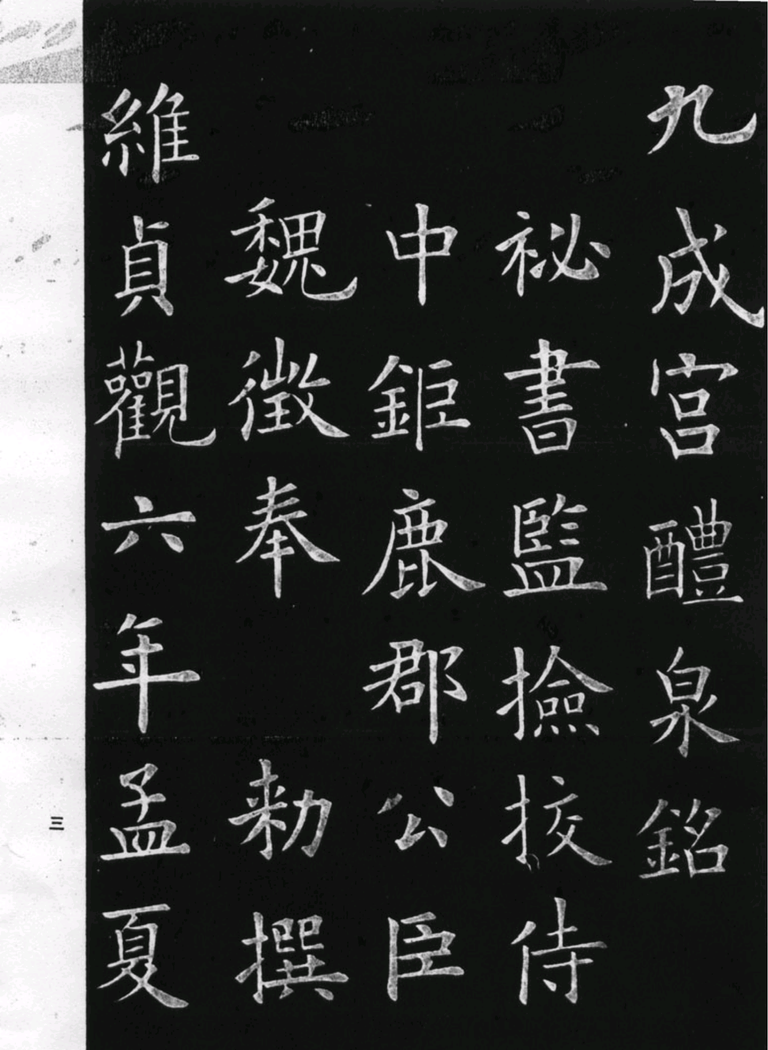 九成宮醴泉銘
祕書監撿挍侍
中鉅鹿郡公臣
魏徵奉 勑撰
維貞觀六年孟夏
三